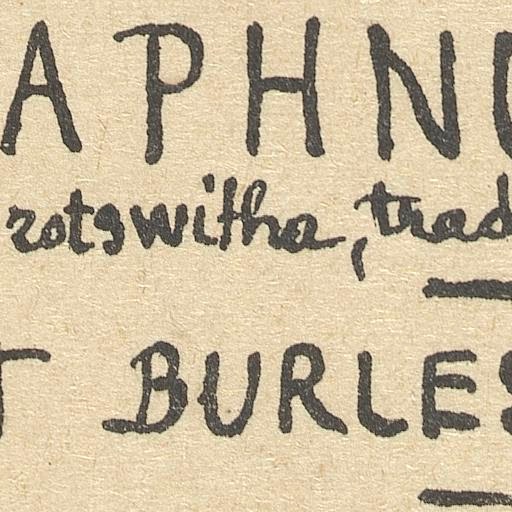 APHNU
rotswitha, trad
T BURLES